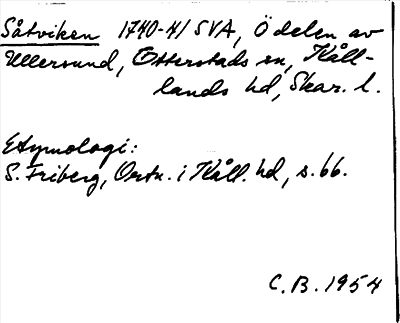 Såtviken 1740-41 SVA, Ö delen av
Ullersund, Otterstads sn, Kåll-
lands hd, Skar. l.
Etymologi:
S. Friberg, Ortn. i Kåll. hd, s. 66.
C. B. 1954